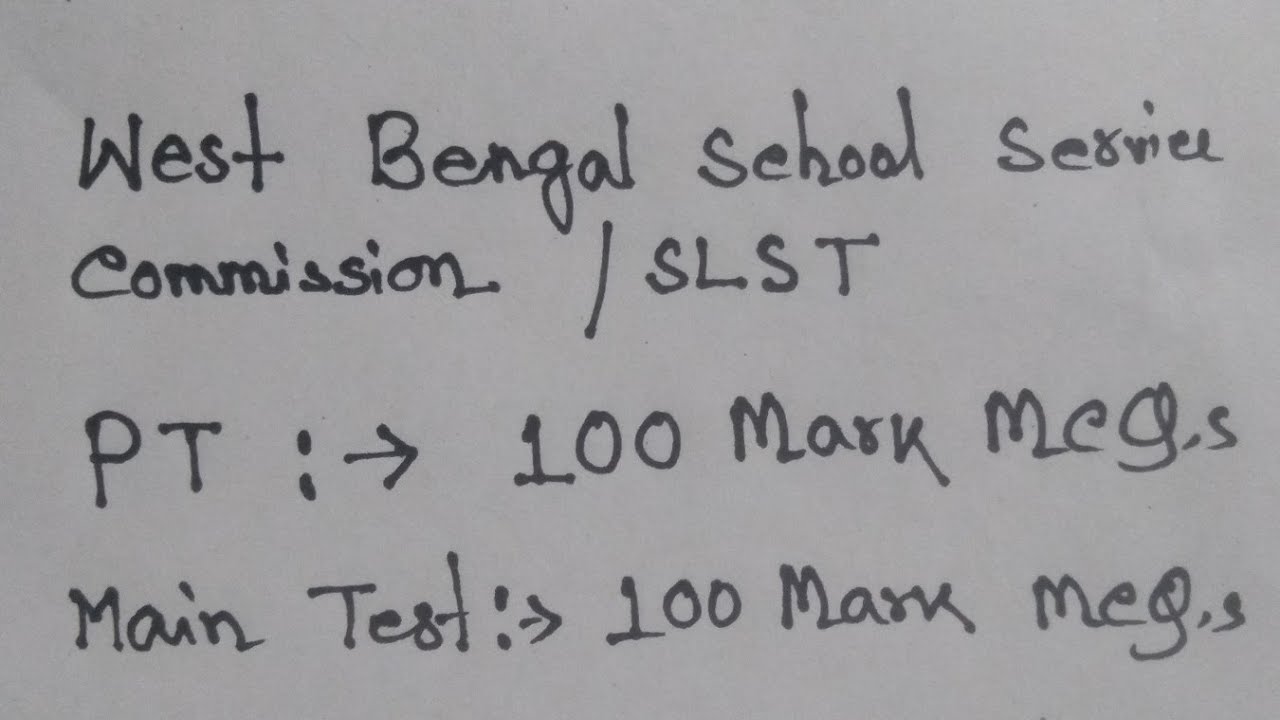 West Bengal School Service
Commission / SLST
PT :→ 100 Mark MCQ.s
Main Test :→ 100 Mark MCQ.s